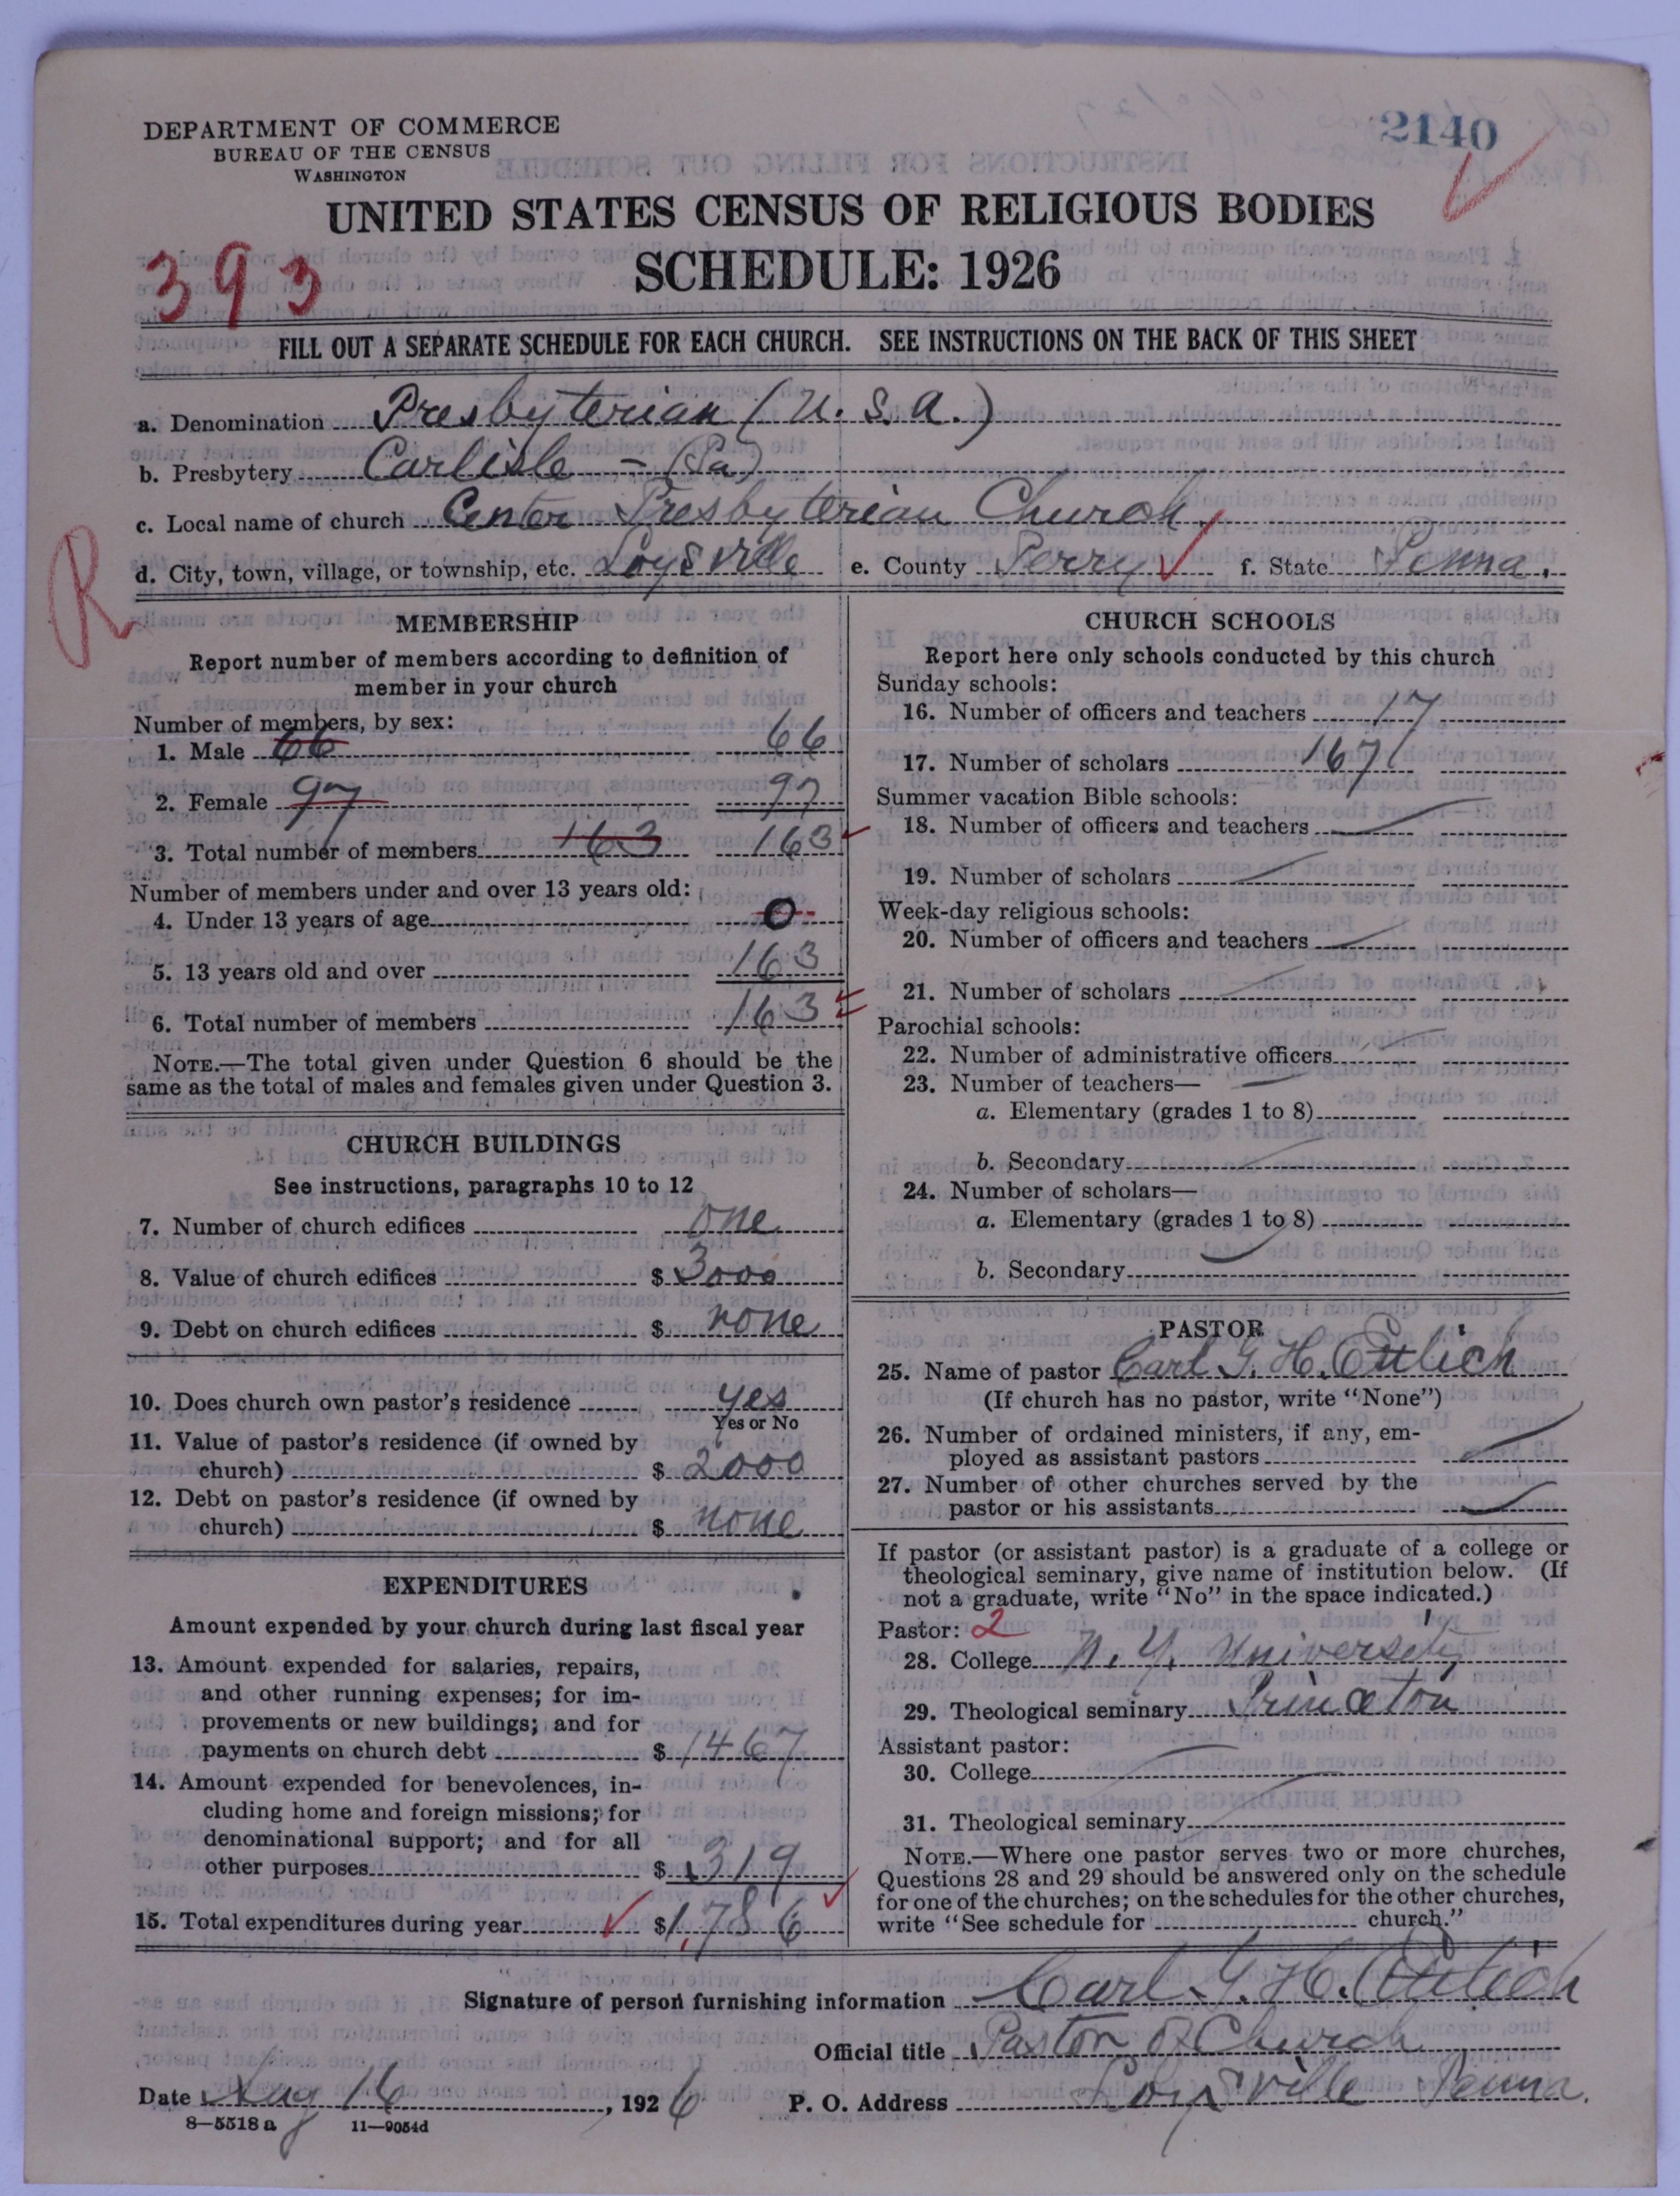 2140
DEPARTMENT OF COMMERCE
BUREAU OF THE CENSUS
WASHINGTON
UNITED STATES CENSUS OF RELIGIOUS BODIES
SCHEDULE: 1926
393
FILL OUT A SEPARATE SCHEDULE FOR EACH CHURCH. SEE INSTRUCTIONS ON THE BACK OF THIS SHEET
a. Denomination Presbyterian (U. S. A.)
b. Presbytery Carlisle - (Pa)
c. Local name of church Center Presbyterian Church
d. City, town, village, or township, etc. Loysville e. County Perry f. State Penna.
R
MEMBERSHIP
Report number of members according to definition of
member in your church
Number of members, by sex:
1. Male 66 66
2. Female 97 97
3. Total number of members 163 163
Number of members under and over 13 years old:
4. Under 13 years of age 0
5. 13 years old and over 163
6. Total number of members 163
NOTE.—The total given under Question 6 should be the
same as the total of males and females given under Question 3.
CHURCH BUILDINGS
See instructions, paragraphs 10 to 12
7. Number of church edifices one
8. Value of church edifices $ 3000
9. Debt on church edifices $ none
10. Does church own pastor's residence yes
Yes or No
11. Value of pastor's residence (if owned by
church) $ 2000
12. Debt on pastor's residence (if owned by
church) $ none
EXPENDITURES
Amount expended by your church during last fiscal year
13. Amount expended for salaries, repairs,
and other running expenses; for im-
provements or new buildings; and for
payments on church debt $ 1467
14. Amount expended for benevolences, in-
cluding home and foreign missions; for
denominational support; and for all
other purposes $ 319
15. Total expenditures during year $ 1,786
CHURCH SCHOOLS
Report here only schools conducted by this church
Sunday schools:
16. Number of officers and teachers 17
17. Number of scholars 167
Summer vacation Bible schools:
18. Number of officers and teachers
19. Number of scholars
Week-day religious schools:
20. Number of officers and teachers
21. Number of scholars
Parochial schools:
22. Number of administrative officers
23. Number of teachers—
a. Elementary (grades 1 to 8)
b. Secondary
24. Number of scholars—
a. Elementary (grades 1 to 8)
b. Secondary
PASTOR
25. Name of pastor Carl G. H. Ettlich
(If church has no pastor, write "None")
26. Number of ordained ministers, if any, em-
ployed as assistant pastors
27. Number of other churches served by the
pastor or his assistants
If pastor (or assistant pastor) is a graduate of a college or
theological seminary, give name of institution below. (If
not a graduate, write "No" in the space indicated.)
Pastor: 2
28. College N. Y. University
29. Theological seminary Princeton
Assistant pastor:
30. College
31. Theological seminary
NOTE.—Where one pastor serves two or more churches,
Questions 28 and 29 should be answered only on the schedule
for one of the churches; on the schedules for the other churches,
write "See schedule for church."
Signature of person furnishing information Carl G. H. Ettlich
Official title Pastor of Church
Date Aug 16, 1926 P. O. Address Loysville Penna.
8—5518 a 11—9054d